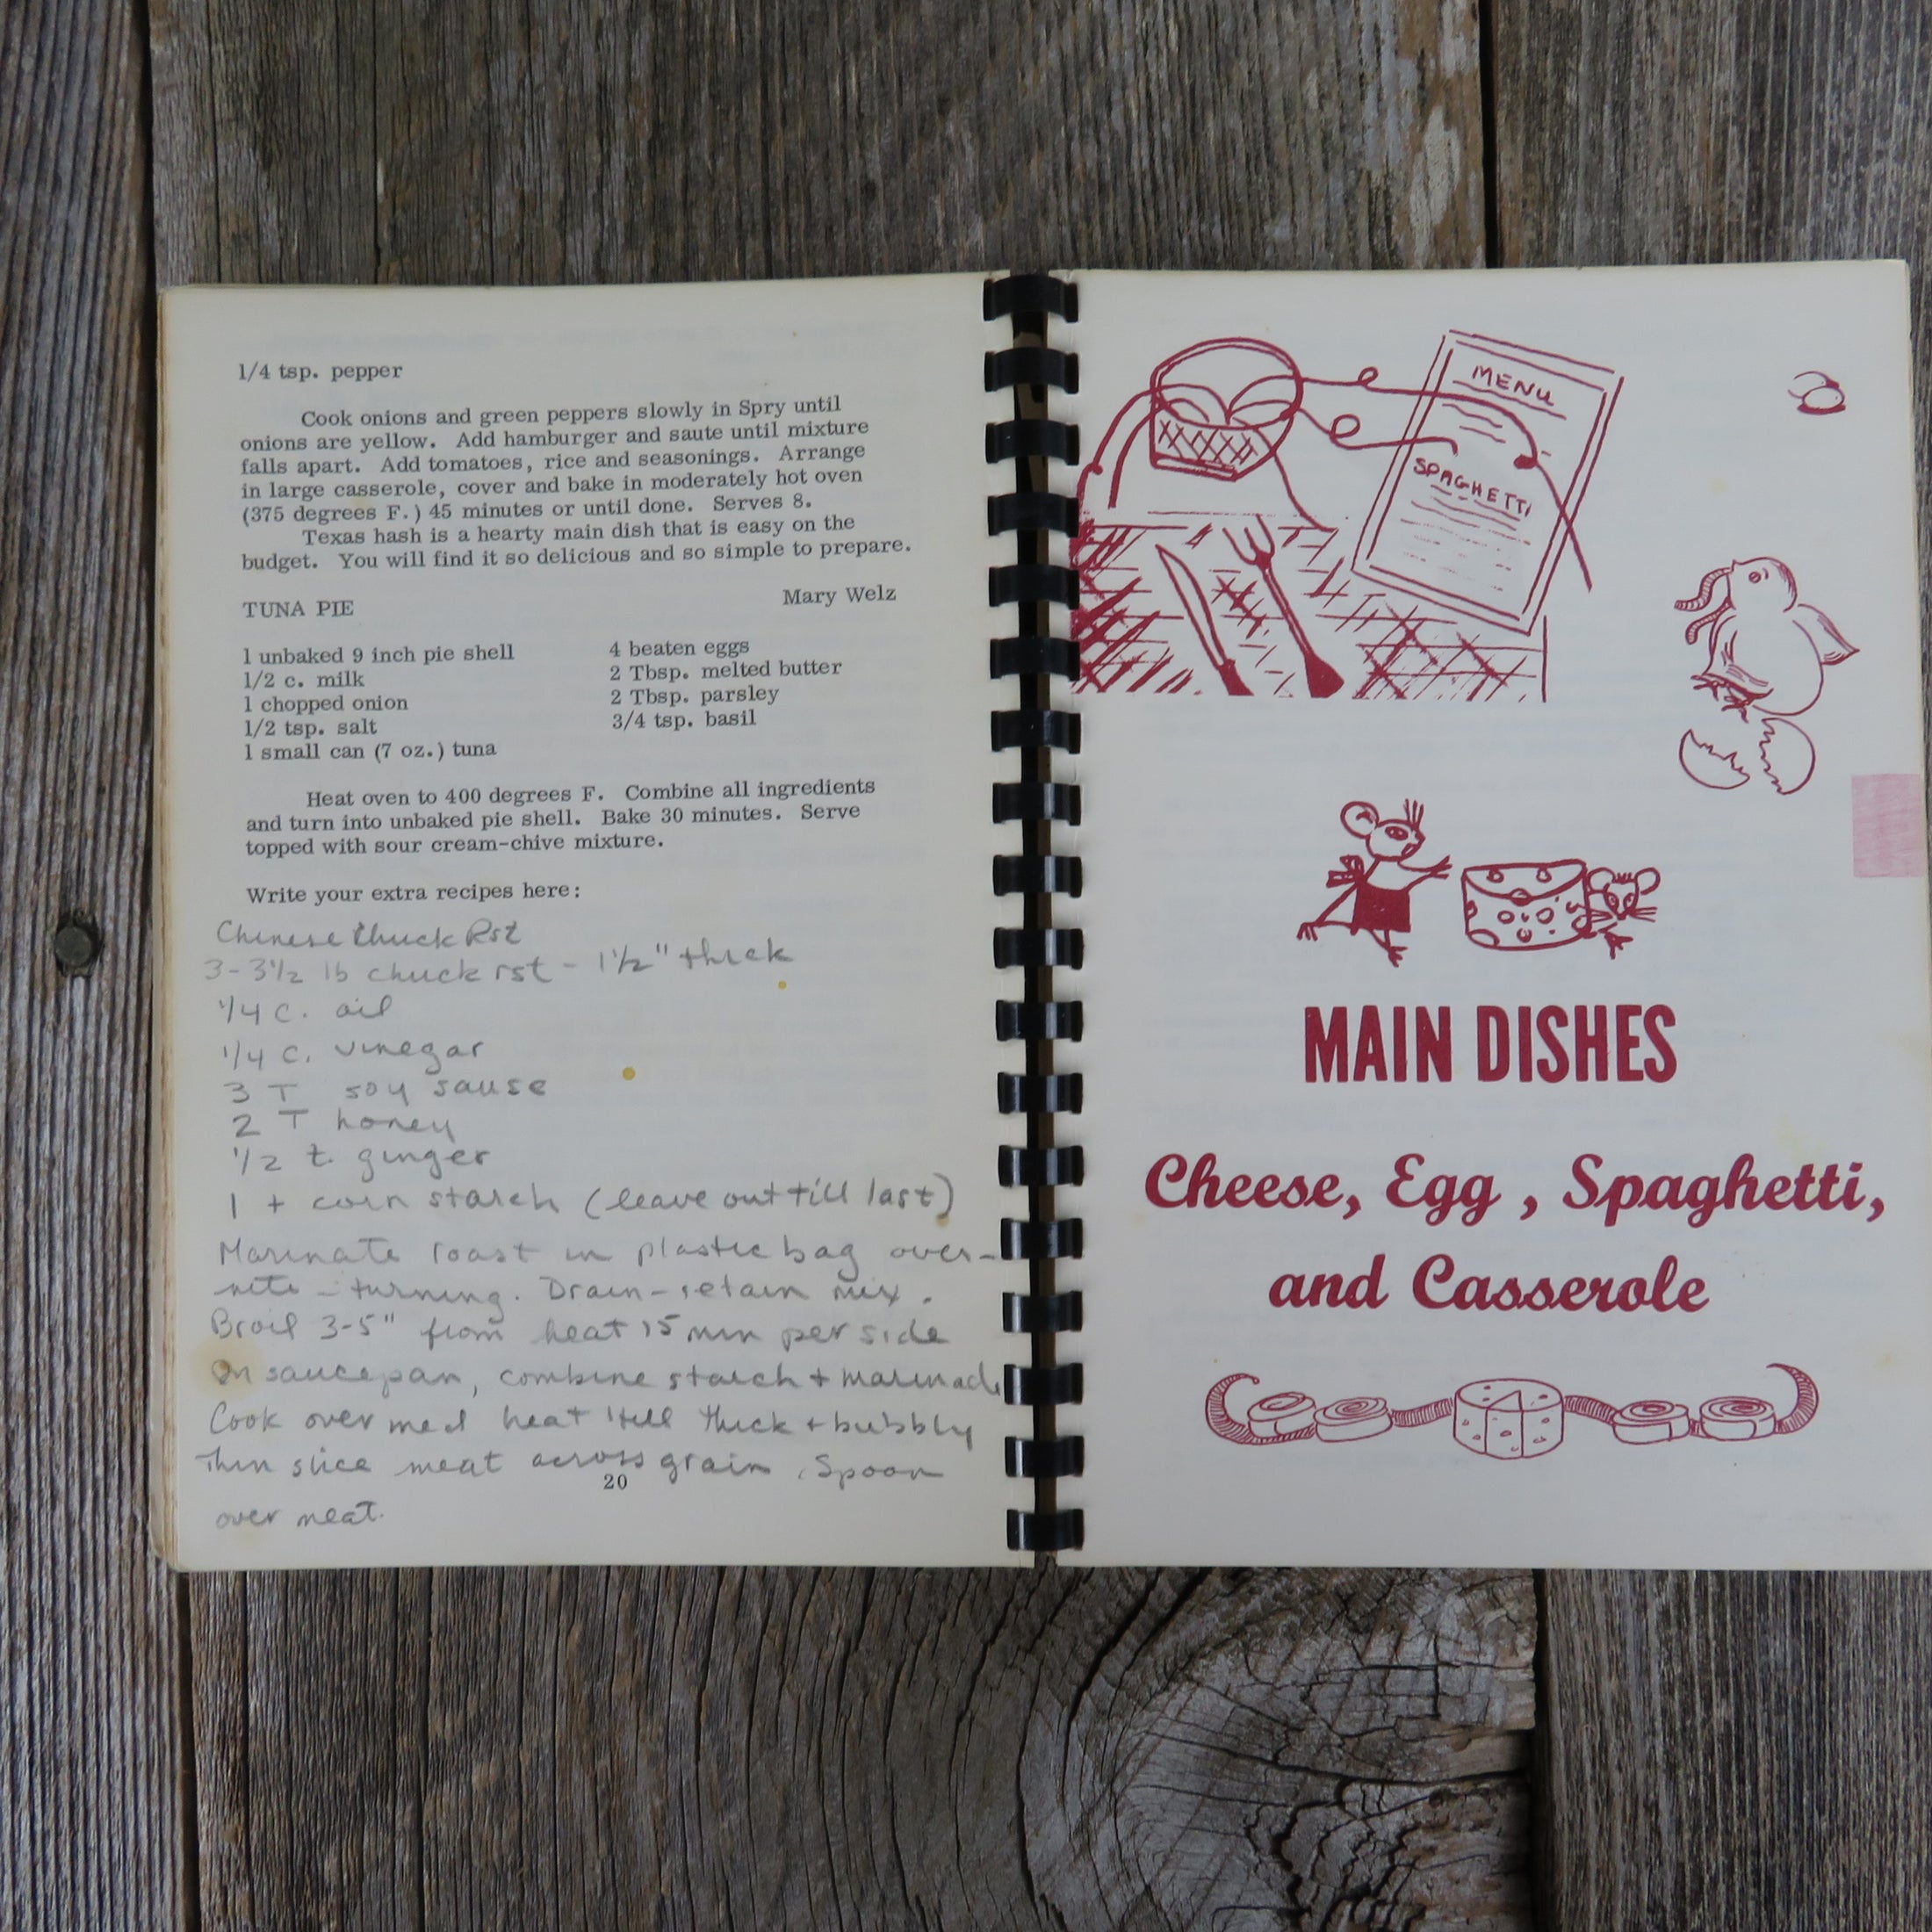 1/4 tsp. pepper
Cook onions and green peppers slowly in Spry until
onions are yellow. Add hamburger and saute until mixture
falls apart. Add tomatoes, rice and seasonings. Arrange
in large casserole, cover and bake in moderately hot oven
(375 degrees F.) 45 minutes or until done. Serves 8.
Texas hash is a hearty main dish that is easy on the
budget. You will find it so delicious and so simple to prepare.
TUNA PIE Mary Welz
1 unbaked 9 inch pie shell 4 beaten eggs
1/2 c. milk 2 Tbsp. melted butter
1 chopped onion 2 Tbsp. parsley
1/2 tsp. salt 3/4 tsp. basil
1 small can (7 oz.) tuna
Heat oven to 400 degrees F. Combine all ingredients
and turn into unbaked pie shell. Bake 30 minutes. Serve
topped with sour cream-chive mixture.
Write your extra recipes here:
Chinese Chuck Rst
3-3 1/2 lb chuck rst - 1 1/2" thick
1/4 c. oil
1/4 c. vinegar
3 T soy sause
2 T honey
1/2 t. ginger
1 t corn starch (leave out till last)
Marinate roast in plastic bag over-
nite - turning. Drain - retain mix.
Broil 3-5" from heat 15 min per side
In saucepan, combine starch + marinade
Cook over med heat till thick + bubbly
Thin slice meat across grain. Spoon
over meat.
20
MENU
SPAGHETTI
MAIN DISHES
Cheese, Egg , Spaghetti,
and Casserole